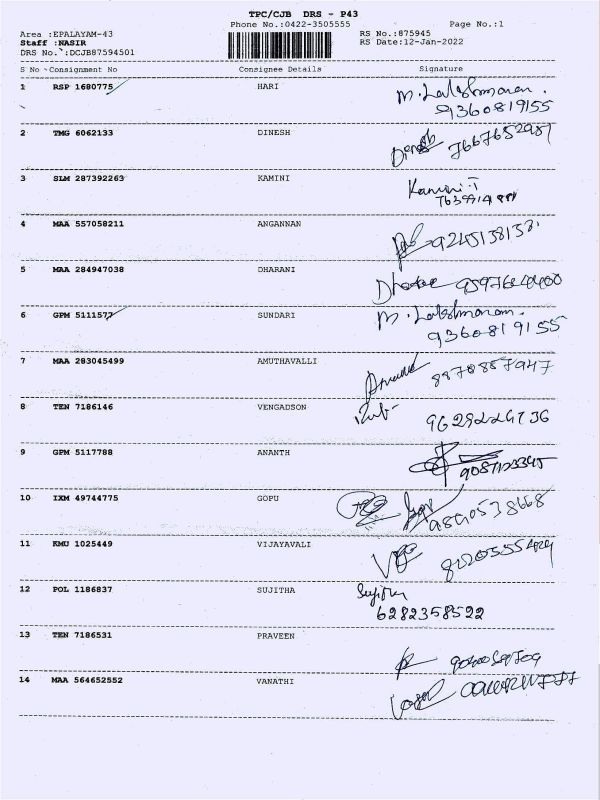 TPC/CJB DRS - P43
Phone No.:0422-3505555 Page No.:1
Area :EPALAYAM-43 RS No.:875945
Staff :NASIR RS Date:12-Jan-2022
DRS No.:DCJB87594501
S No Consignment No Consignee Details Signature
1 RSP 1680775 HARI M. Lakshmanan.
9360819155
2 TMG 6062133 DINESH Dinesh 7667652987
3 SLM 287392263 KAMINI Kamini.T
4 MAA 557058211 ANGANNAN 9245138138
5 MAA 284947038 DHARANI
6 GPM 5111577 SUNDARI M. Lakshmanan.
9360819155
7 MAA 283045499 AMUTHAVALLI 8970857947
8 TEN 7186146 VENGADSON
9 GPM 5117788 ANANTH
10 IXM 49744775 GOPU
11 KMU 1025449 VIJAYAVALI
12 POL 1186837 SUJITHA Sujitha
6282358522
13 TEN 7186531 PRAVEEN
14 MAA 564652552 VANATHI